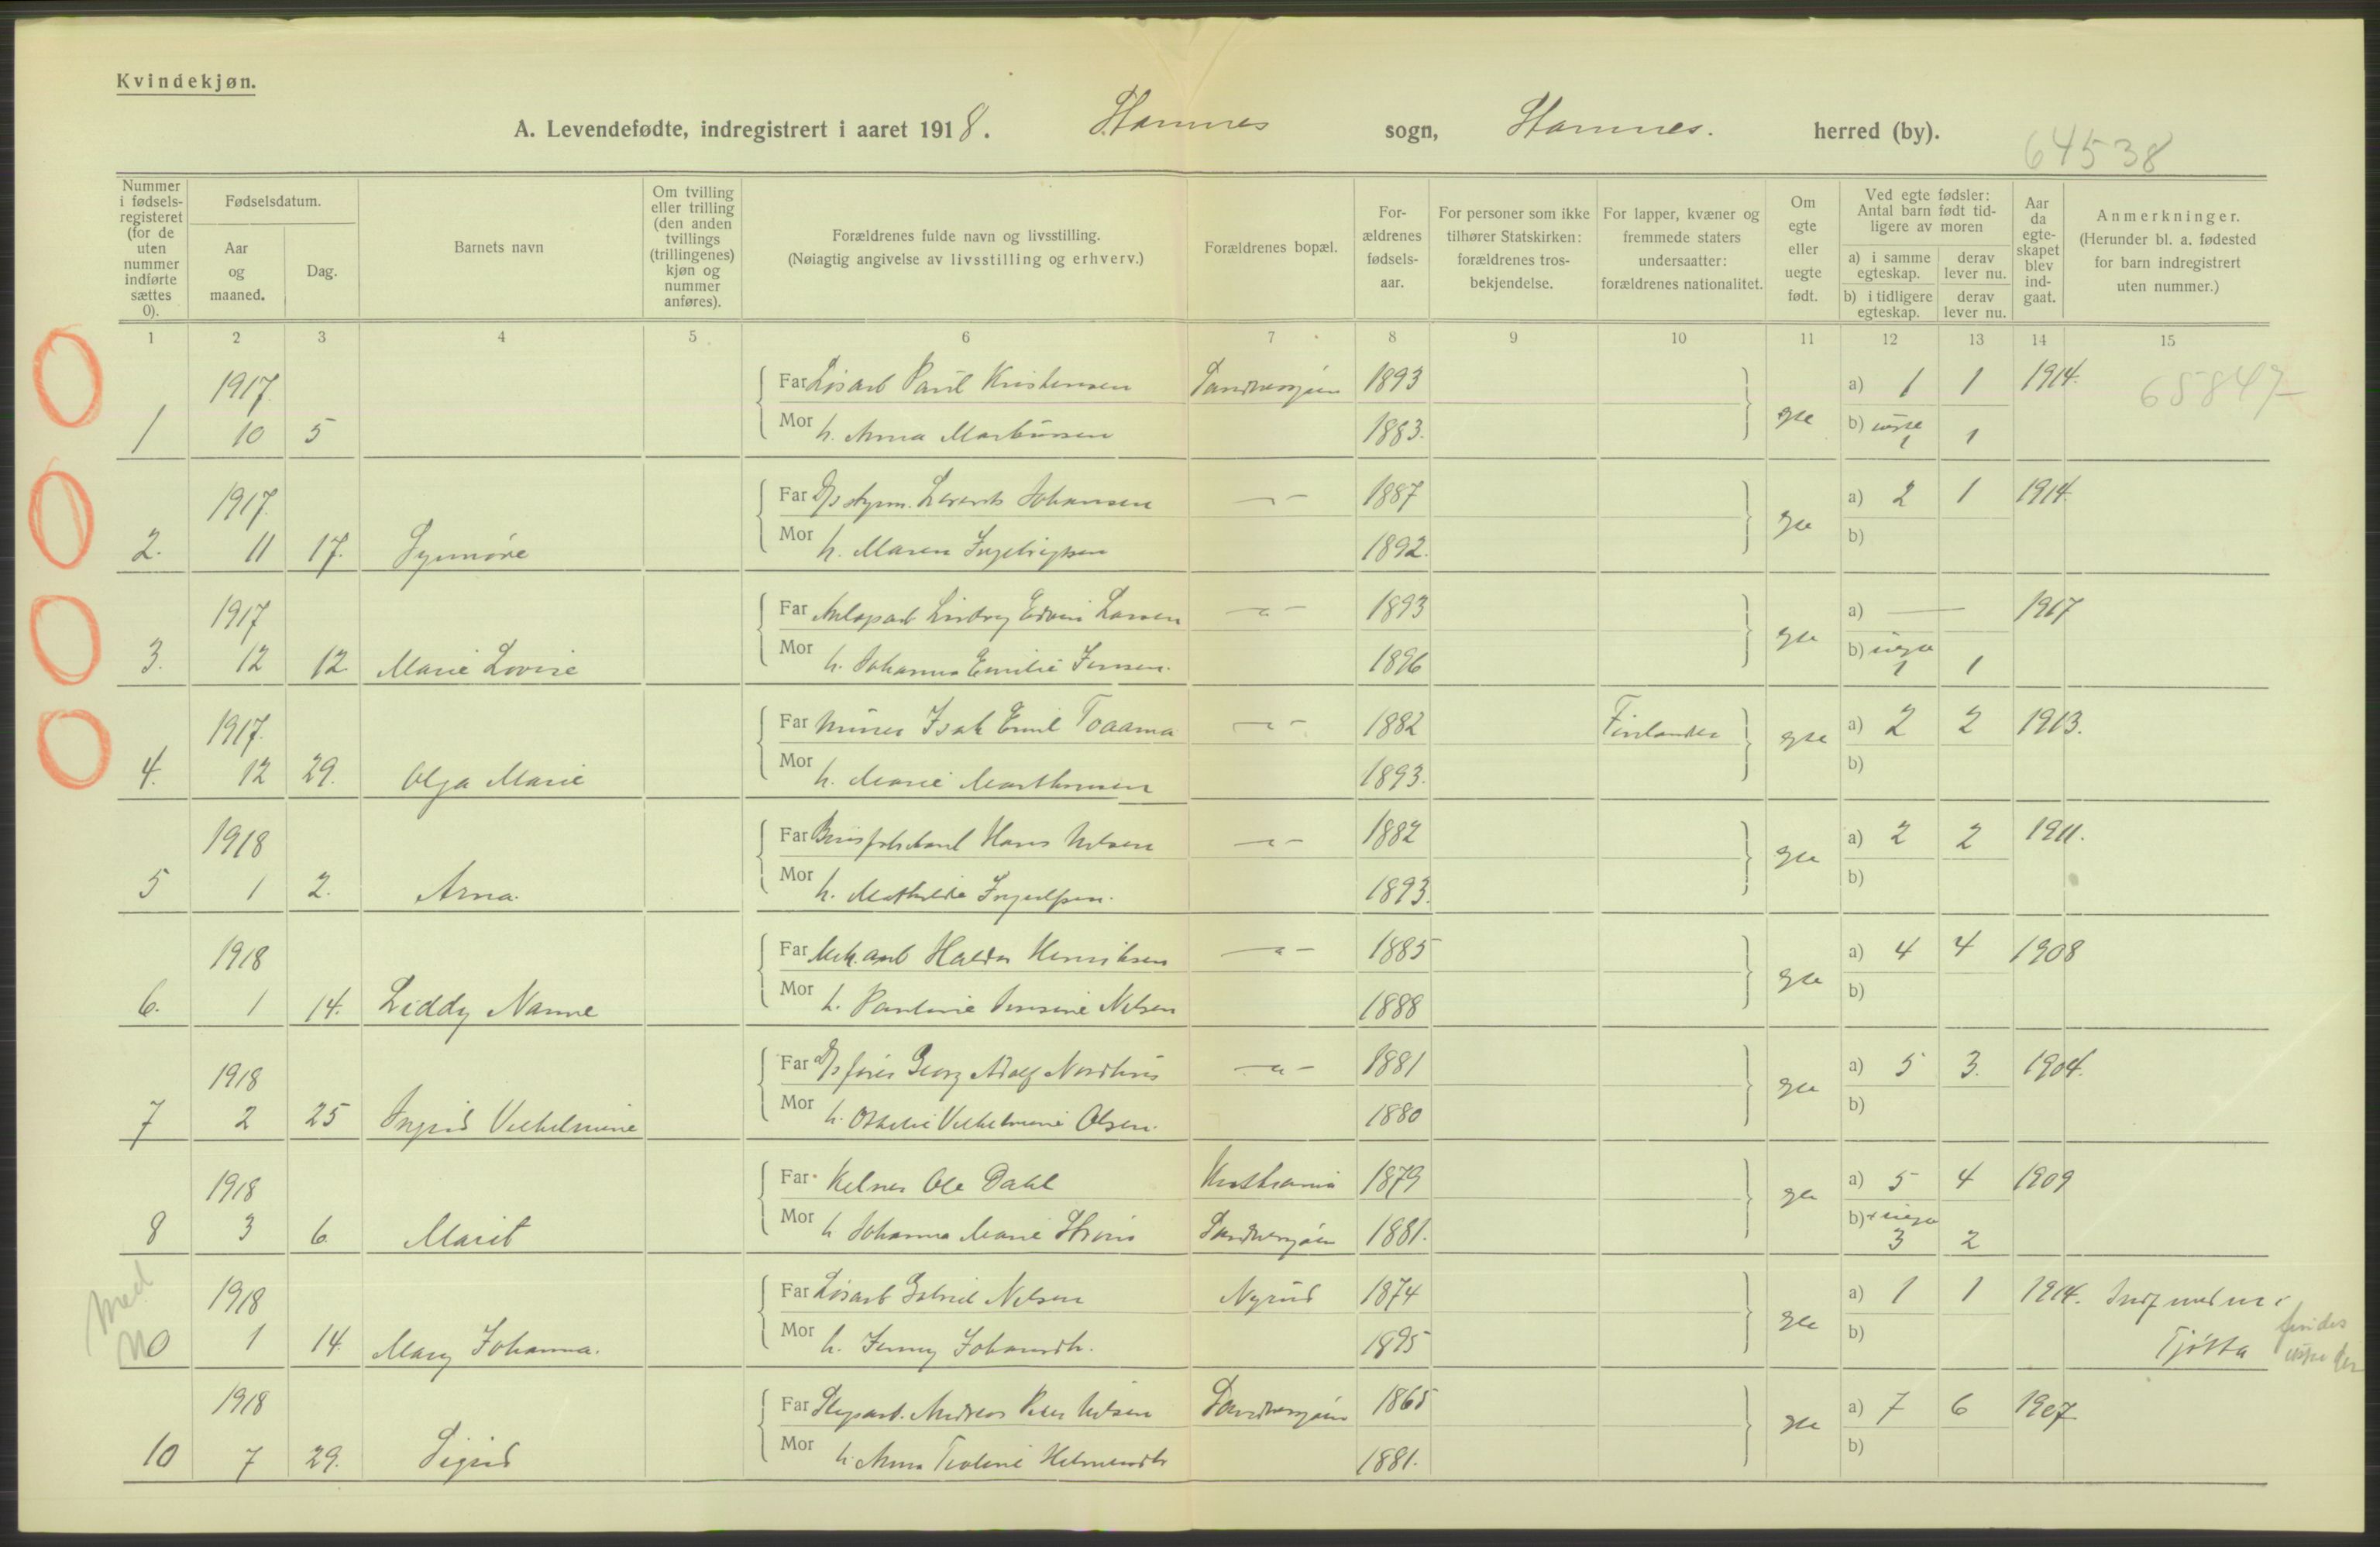 Kvindekjøn.
A. Levendefødte, indregistrert i aaret 1918. Stamnes sogn, Stamnes. herred (by).
64538
Nummer i fødsels-registeret (for de uten nummer indførte sættes 0).
Fødselsdatum.
Aar og maaned.
Dag.
Barnets navn
Om tvilling eller trilling (den anden tvillings (trillingenes) kjøn og nummer anføres).
Forældrenes fulde navn og livsstilling.
(Nøiagtig angivelse av livsstilling og erhverv.)
Forældrenes bopæl.
For-ældrenes fødsels-aar.
For personer som ikke tilhører Statskirken: forældrenes tros-bekjendelse.
For lapper, kvæner og fremmede staters undersaatter: forældrenes nationalitet.
Om egte eller uegte født.
Ved egte fødsler: Antal barn født tid-ligere av moren
a) i samme egteskap. derav lever nu.
b) i tidligere egteskap. derav lever nu.
Aar da egte-skapet blev ind-gaat.
Anmerkninger.
(Herunder bl. a. fødested for barn indregistrert uten nummer.)
1 2 3 4 5 6 7 8 9 10 11 12 13 14 15
1917. Far Løsarb Paul Kristensen Sandnessjøen 1893 a) 1 1 1914. 65847
1 10 5 Mor h. Anna 1883. gte b) uegte 1 1
1917. Far D/s Johansen 1887 a) 2 1 1914.
2. 11 17. Synnöve Mor h. Maren Ingebrigtsen 1892. gte b)
1917 Far Ludvig Edvin Larsen 1893 a) — 1917
3. 12 12 Marie Lovise Mor h. Johanna Emilie Jensen. 1896 gte b) uegte 1 1
1917. Far Minör Isak Emil Toaama 1882 Finlender a) 2 2 1913.
4. 12 29. Olga Marie Mor h. Marie Marthinsen 1893. gte b)
1918 Far Hans Nilsen 1882 a) 2 2 1911.
5 1 2. Arna. Mor h. Mathilde 1893. gte b)
1918 Far Mek. arb Haldor Henriksen 1885 a) 4 4 1908
6. 1 14. Liddy Nanne Mor h. Pauline Jensine Nilsen 1888 gte b)
1918 Far D/s fører Georg Adolf Nordhus 1881 a) 5 3. 1904.
7 2 25 Ingrid Vilhelmine Mor h. Othelie Vilhelmine Olsen. 1880 gte b)
1918 Far Kelner Ole Dahl Kristiania 1879 a) 5 4 1909
8 3 6 Marit Mor h Johanna Marie Sandnessjøen 1881. gte b) + uegte 3 2
Med
1918 Far Løsarb Gabriel Nilsen Nyrud 1874 a) 1 1 1914. Indf med nr i
0 1 14. Mary Johanna. Mor h. Jenny Johansdtr. 1895 gte b) Tjøtta findes ikke der
1918 Far Andreas Peter Nilsen Sandnessjøen 1865 a) 7 6 1907
10 7 29. Sigrid Mor h. Anna 1881. gte b)